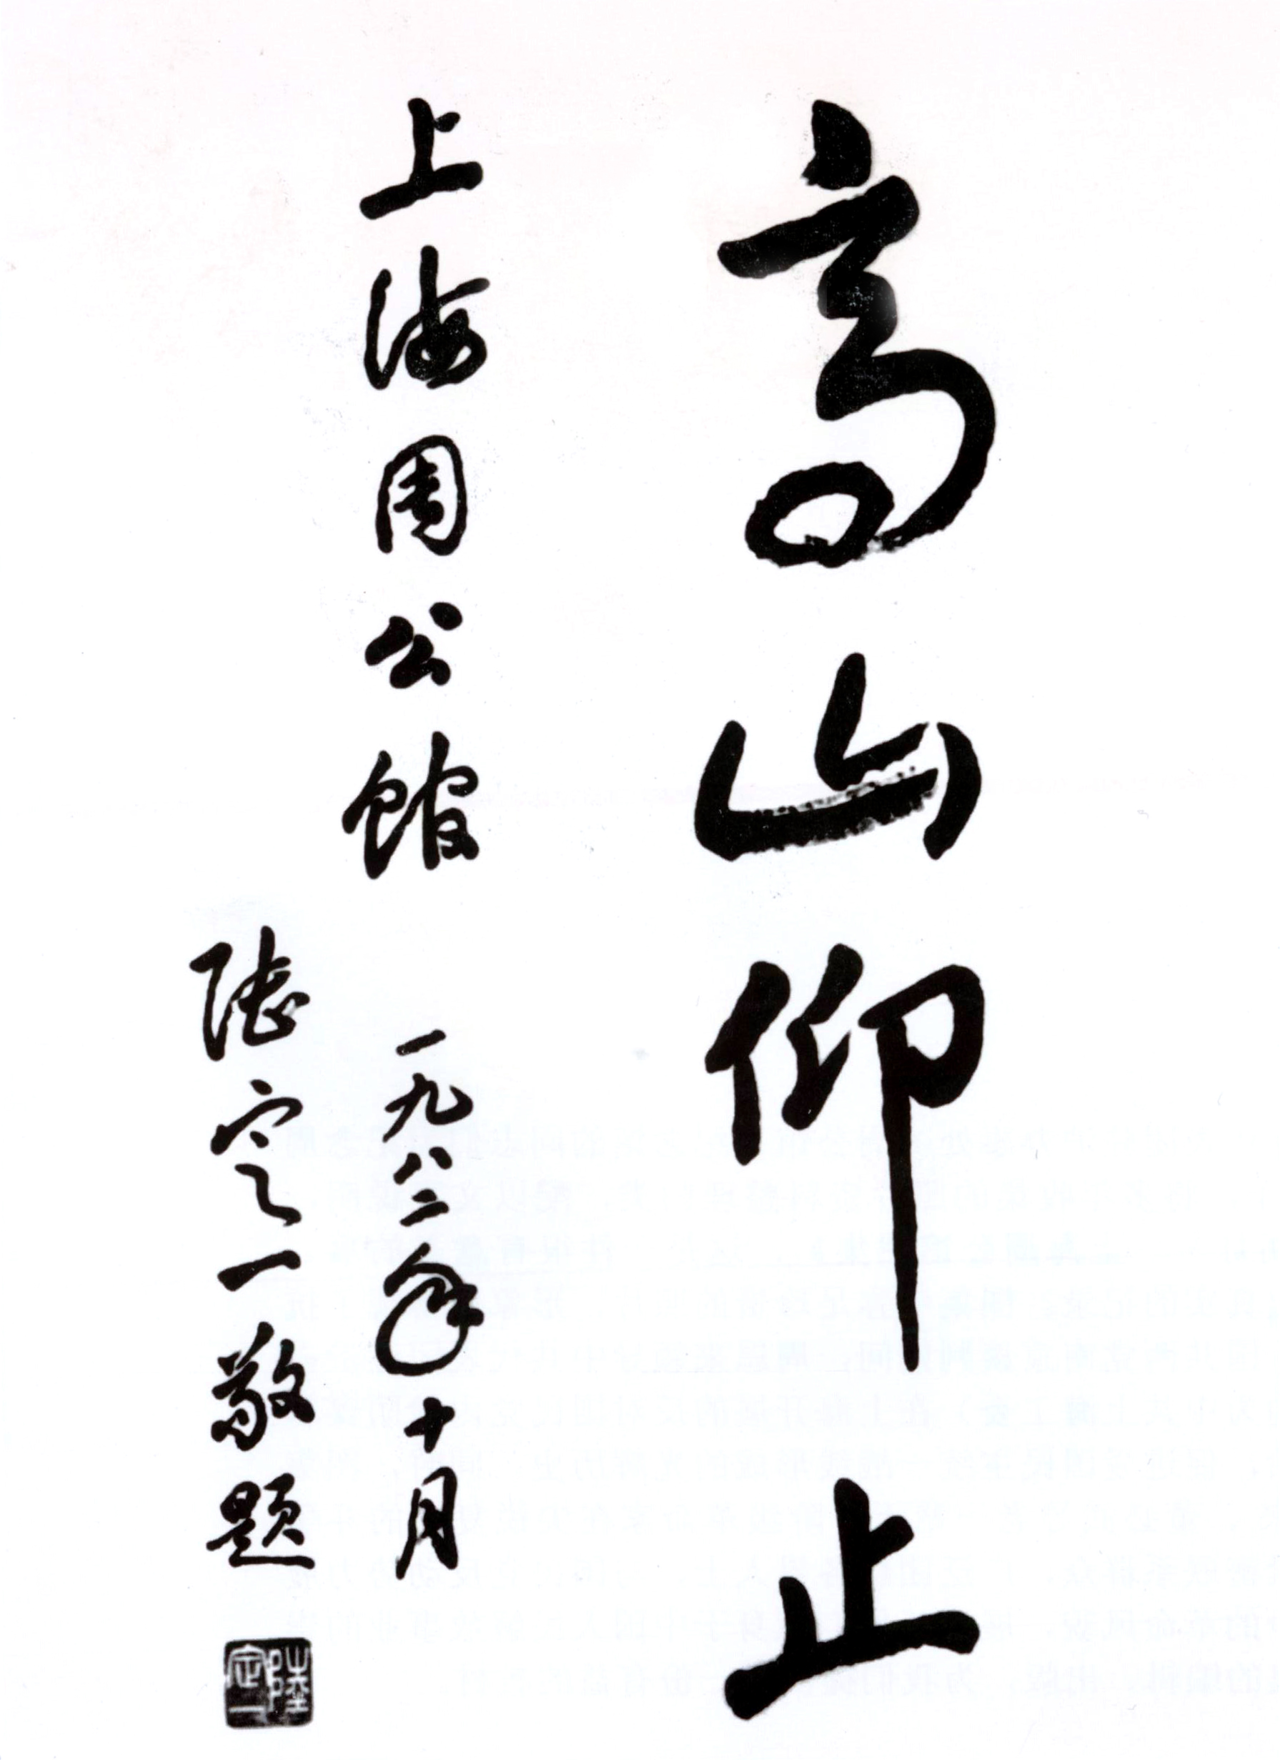 高山仰止
上海周公馆
一九八二年十月
陆定一敬题
陸定一